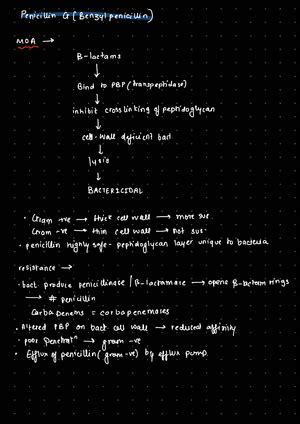 Penicillin G (Benzyl penicillin)
MOA →
B-lactams
↓
Bind to PBP (transpeptidase)
↓
inhibit crosslinking of peptidoglycan
↓
cell-wall deficient bact
↓
lysis
↓
BACTERICIDAL
• Gram +ve → thick cell wall → more sus.
Gram -ve → thin cell wall → not sus.
• penicillin highly safe - peptidoglycan layer unique to bacteria
resistance →
• bact. produce penicillinase / β-lactamase → opens β-lactam rings
→ # penicillin
Carbapenems = carbapenemases
• Altered PBP on bact cell wall → reduced affinity
• poor penetratⁿ → gram -ve
• Efflux of penicillin (gram-ve) by efflux pump.